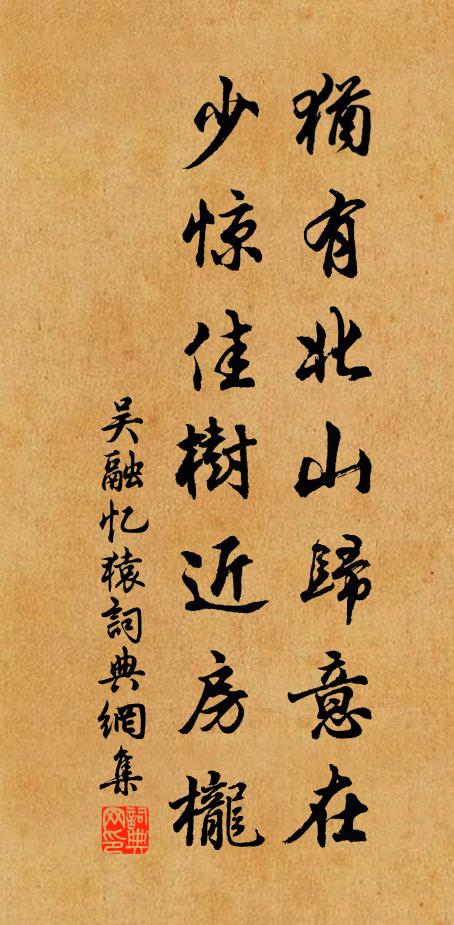 猶有北山歸意在
少惊佳樹近房櫳
吴融忆猿詞典網集
詞典網印